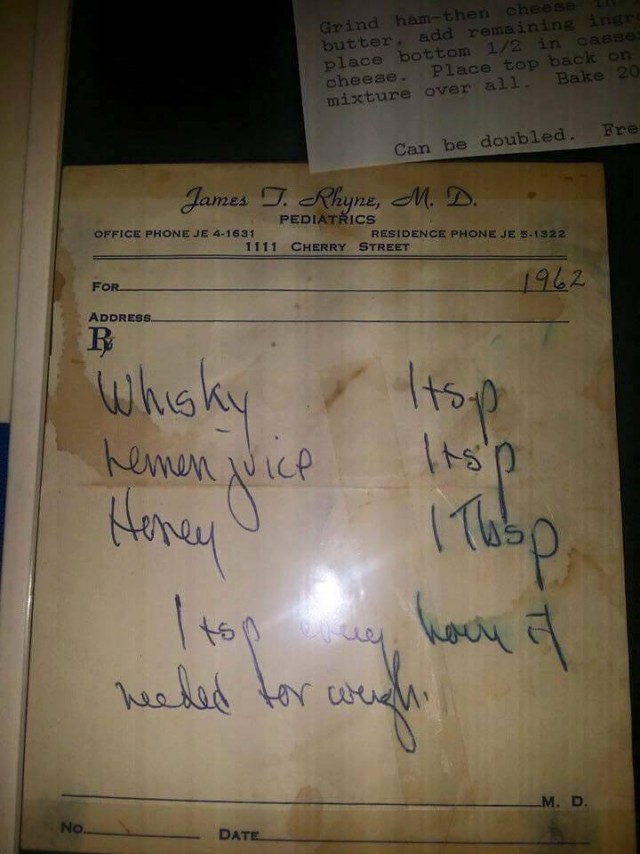 Grind ham-then cheese in
butter, add remaining ingr
place bottom 1/2 in casse
cheese. Place top back on
mixture over all. Bake 20
Can be doubled. Fre
James T. Rhyne, M. D.
PEDIATRICS
OFFICE PHONE JE 4-1631 RESIDENCE PHONE JE 5-1322
1111 CHERRY STREET
FOR 1962
ADDRESS
℞
Whisky 1 tsp
Lemon juice 1 tsp
Honey 1 Tbsp
1 tsp every hour if
needed for cough.
M. D.
NO. DATE